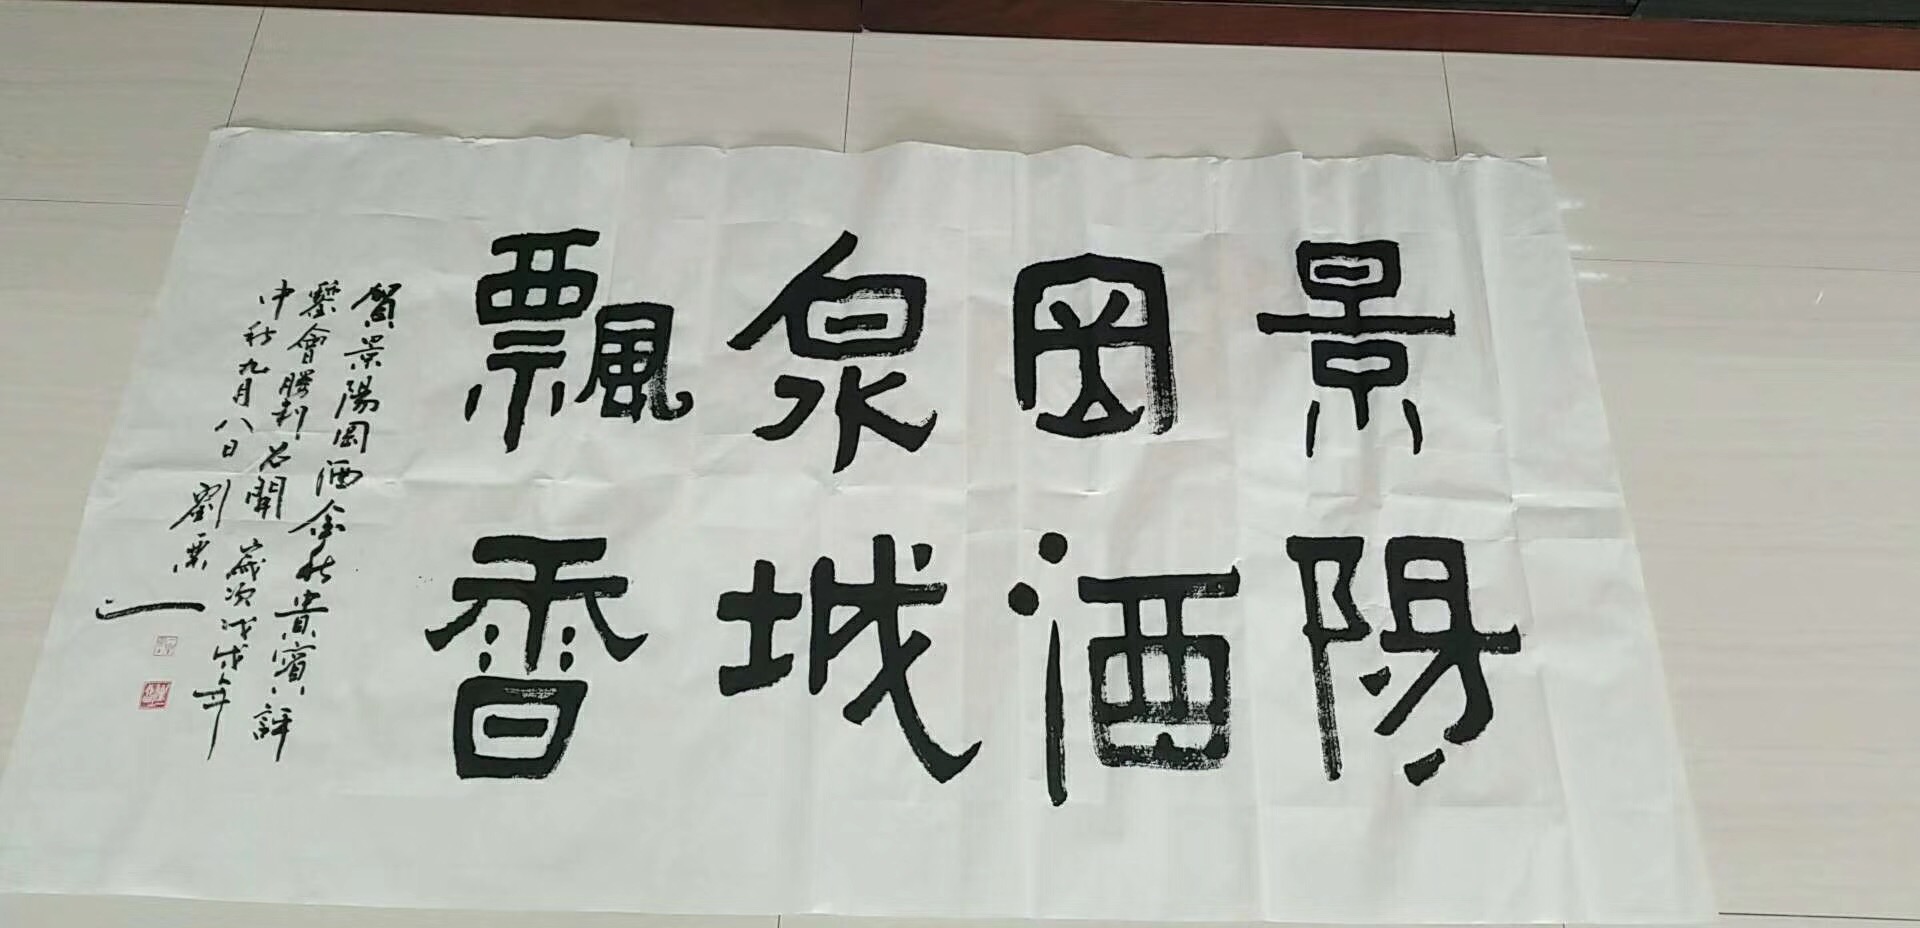 景陽
岡酒
泉城
飄香
賀景陽岡酒金秋貴賓評
鑒會勝利召開 歲次戊戌年
中秋九月八日 劉